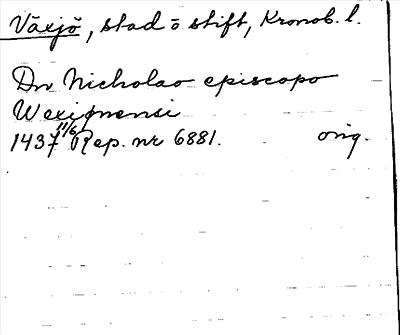 Växjö, stad o stift, Kronob. l.
Dn Nicholao episcopo
Wexionensi
1437 11/6 Rep. nr 6881. orig.